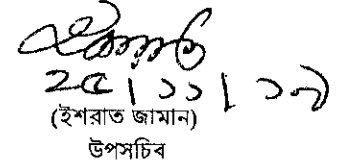 ২৫।১১।১৯
(ইশরাত জামান)
উপসচিব